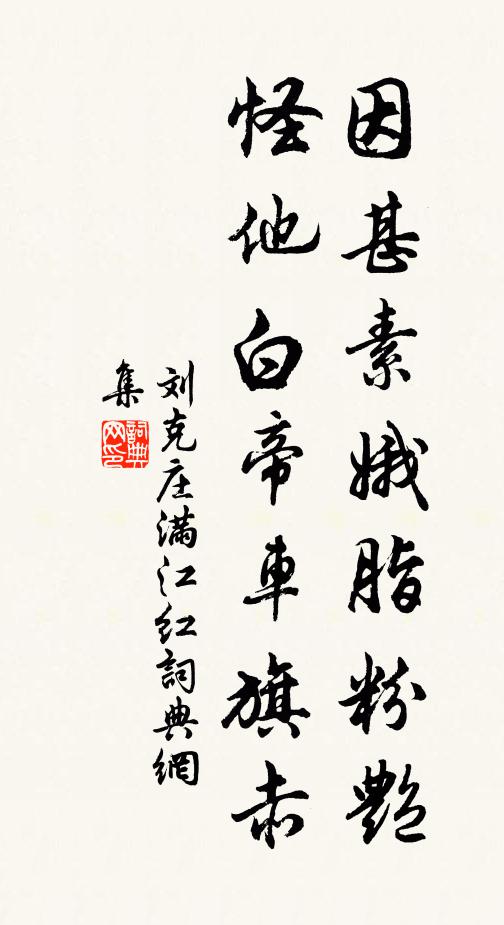 因甚素娥脂粉艷
怪他白帝車旗赤
刘克庄满江红詞典網
集
詞典
网印